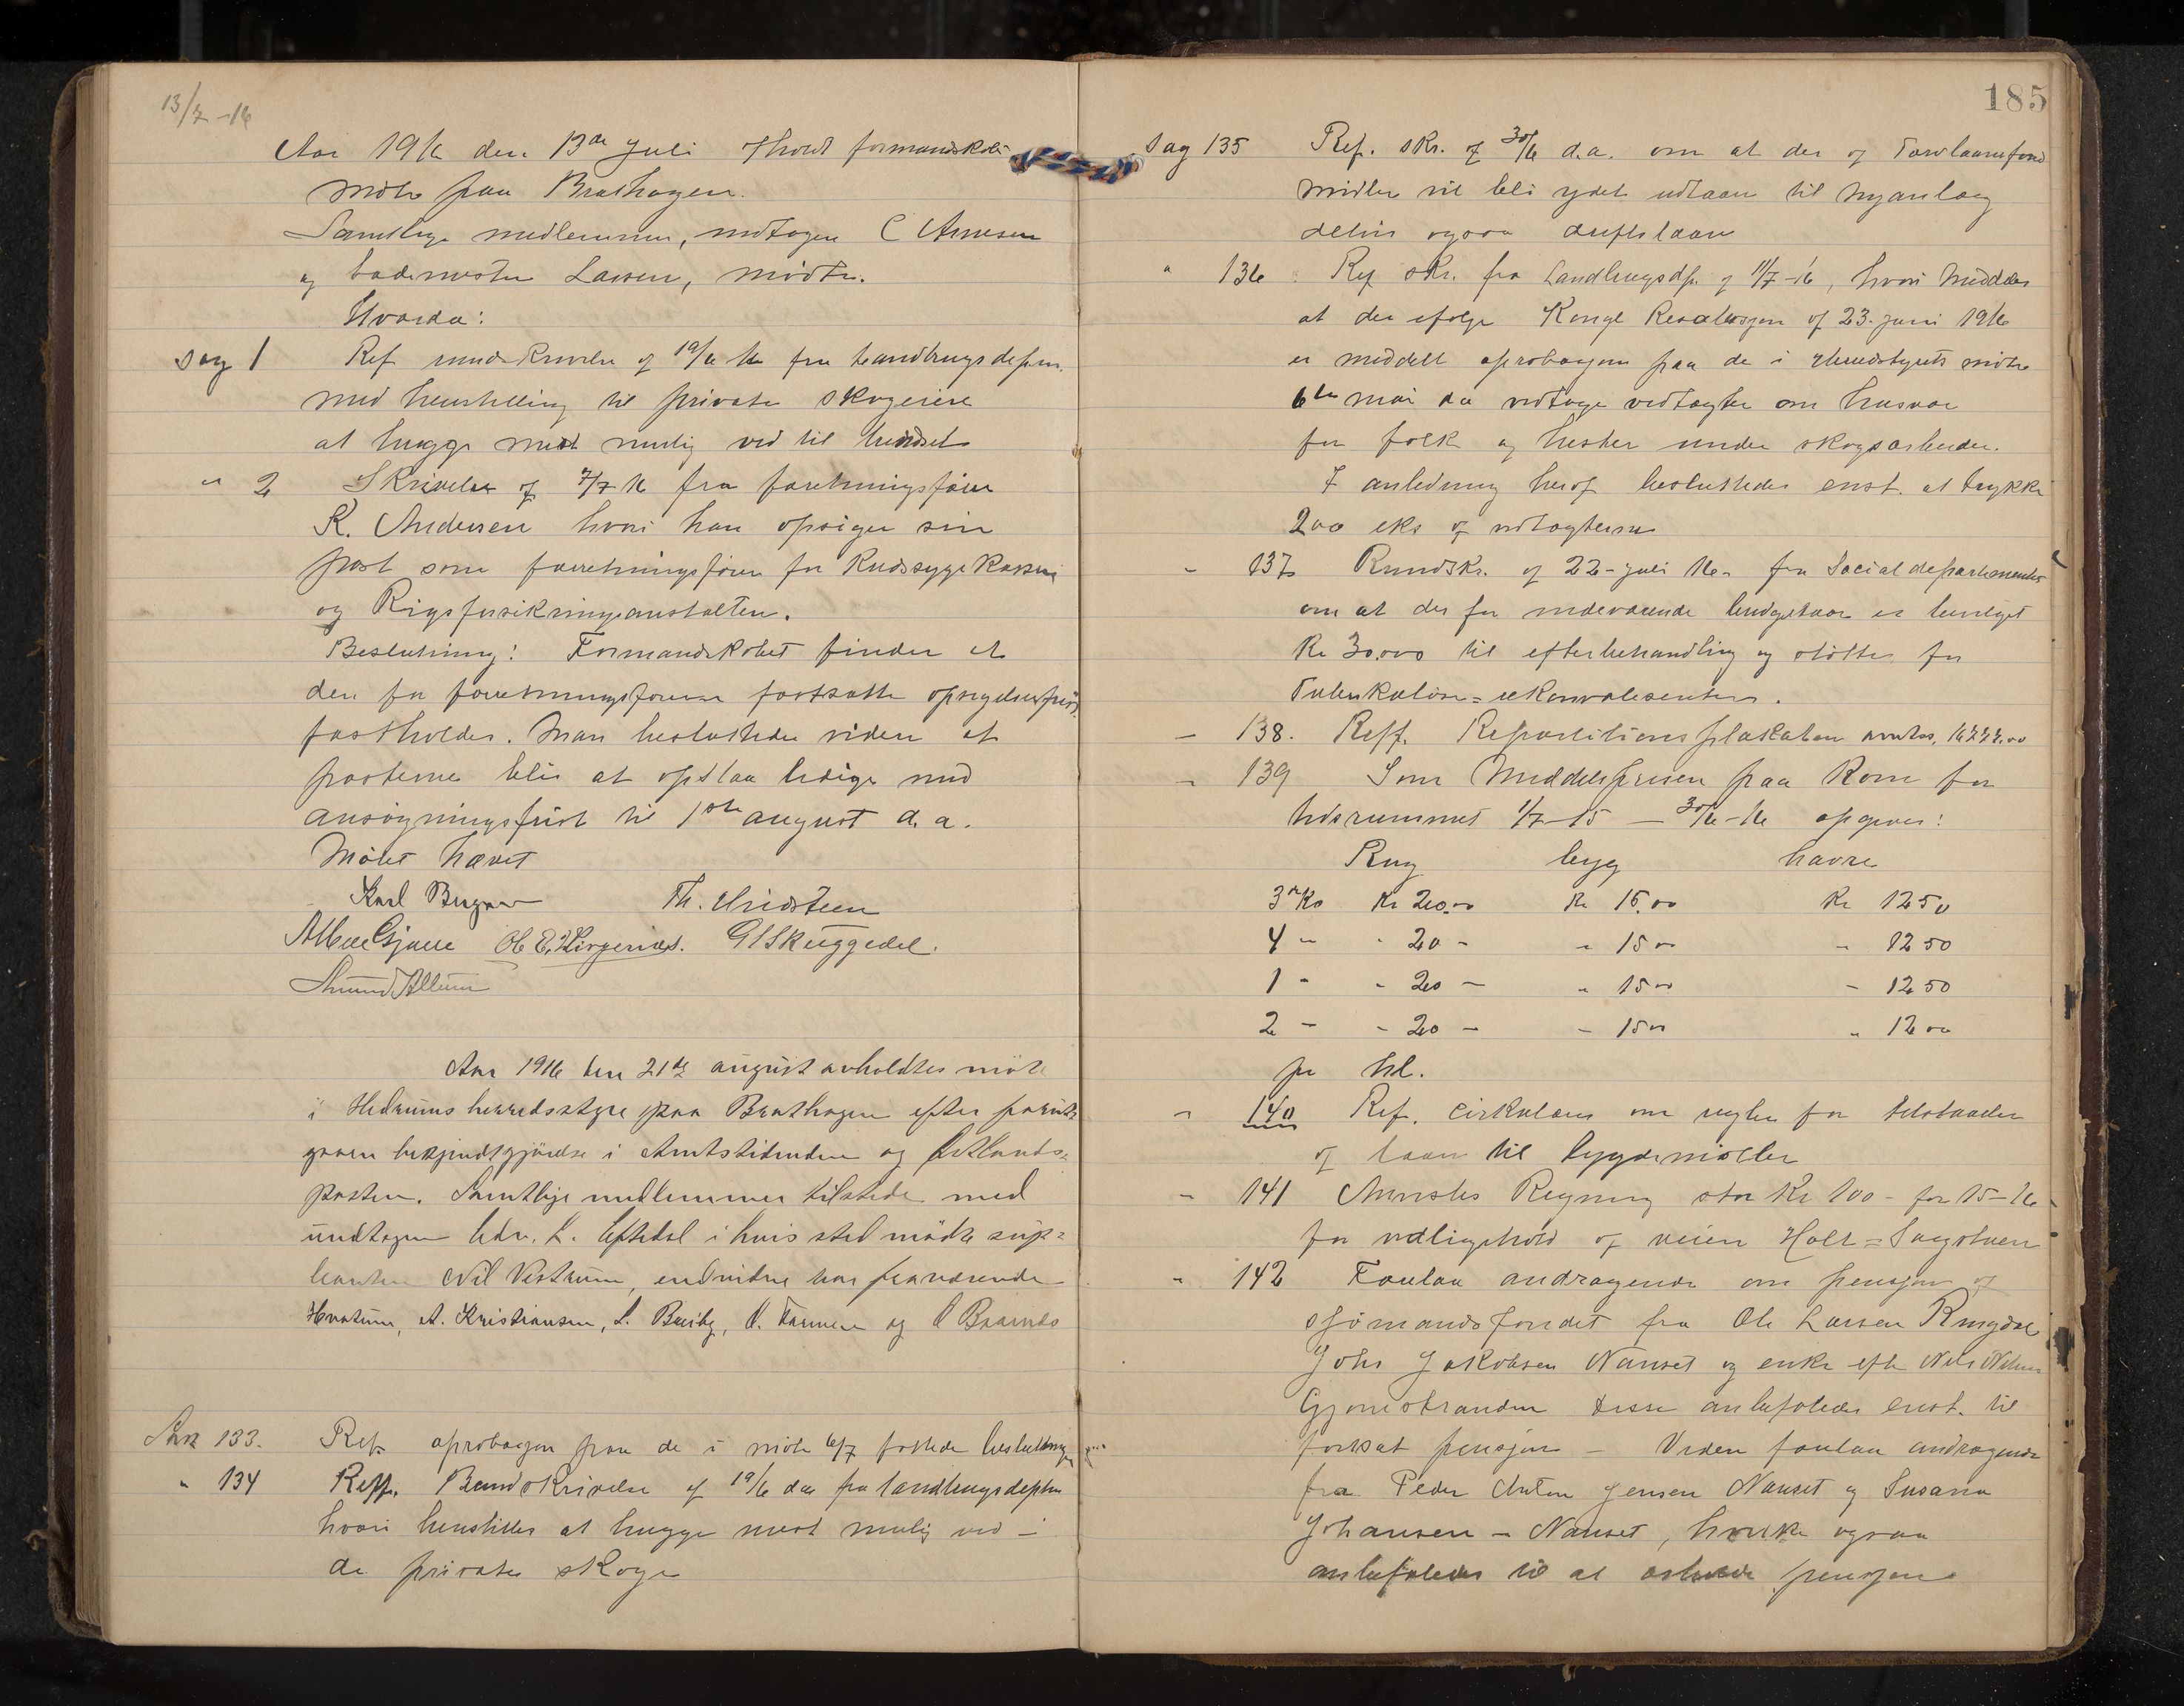 13/7 -16
Aar 1916 den 13de juli holdt formandskab
møte paa Brathagen.
Samtlige medlemmer, undtagen C Arnesen
og Larsen, mødte.
Hvorda:
Sag 1 Ref rundskrivelse af 19/6 16 fra landbrugsdepm.
med henstilling til private skogeiere
at hugge mest mulig ved til
" 2 Skrivelse af 7/7 16 fra foretningsfører
K. Andersen hvori han opsiger sin
post som forretningsfører for Kredssygekassen
og Rigsforsikringsanstalten.
Beslutning: Formandskabet finder at
den for forretningsføreren fastsatte opsigelsesfrist
fastholdes. Man besluttede videre at
posterne blir at opslaa ledige med
ansøgningsfrist til 1ste august d.a.
Møtet hævet
Karl Th. Hvidsteen
Ole E. G. Skuggedal.
Amund Allum
Aar 1916 den 21de august avholdtes møte
i Hedrums herredsstyre paa Brathagen efter forut-
gaaen bekjendtgjørelse i Amtstidenden og Østlands-
posten. Samtlige medlemmer tilstede med
undtagen L. Eftedal i hvis sted mødte sup-
leanten Nil Vestrum, endvidere var fraværende
Hvatum, A. Kristiansen, L. Busby, O. Farmen og O Braanes
Sak 133. Ref. aprobasjon paa de i møte 6/7 fattede beslutninger
" 134 Reff. Rundskrivelse af 19/6 da fra landbrugsdeptm
hvori henstilles at hugge mest mulig ved i
de private skoge
185
Sag 135 Ref. skr. af 30/6 d.a. om at der af Torvlaanefond
midler vil bli ydet udlaan til nyanlæg
delvis ogsaa driftslaan
" 136 Ref skr. fra Landbrugsdp. af 11/7-16, hvori meddeles
at der ifølge Kongl Resolusjon af 23. juni 1916
er meddelt aprobasjon paa de i Herredstyrets møte
6te mai da vedtagne vedtægter om husvær
for folk og hester under skogsarbeider.
I anledning herof besluttedes enst. at trykke
200 eks af vedtægterne
- 137 Rundskr. af 22-juli 16- fra Socialdepartementet
om at der for indeværende budgetaar er bevilget
Kr 30.000 til efterbehandling og støtte for
Tuberkuløse-rekonvalesenter.
- 138. Reff. Repartitionsplakaten
- 139 Som Middelsprisen paa Korn for
tidsrummet 1/7-15 - 30/6-16 opgives:
Rug byg havre
3die Kv Kr 20.00 Kr 15.00 Kr 12 50
4 " " 20 - " 15 00 - 12 50
1 " " 20 - " 15 00 - 12 50
2 - - 20 - - 15 00 " 12 00
pr hl.
- 140 Ref. cirkulære om regler for tilstaaelse
af laan til bygdemøller
- 141 Regning stor Kr 100 - for 15-16
for vedligehold af veien Holt-Sagstuen
" 142 Forelaa andragende om pensjon af
sjømandsfondet fra Ole Larsen Ringdal
Johs Jakobsen Nanset og enke efter Nils Nilsen
Gjonestranden Disse anbefaledes enst. til
fortsat pensjon - Viden forelaa andragende
fra Peder Anton Jensen Nanset og Susana
Johansen - Nanset, hvilke ogsaa
anbefaledes til at erholde pensjon